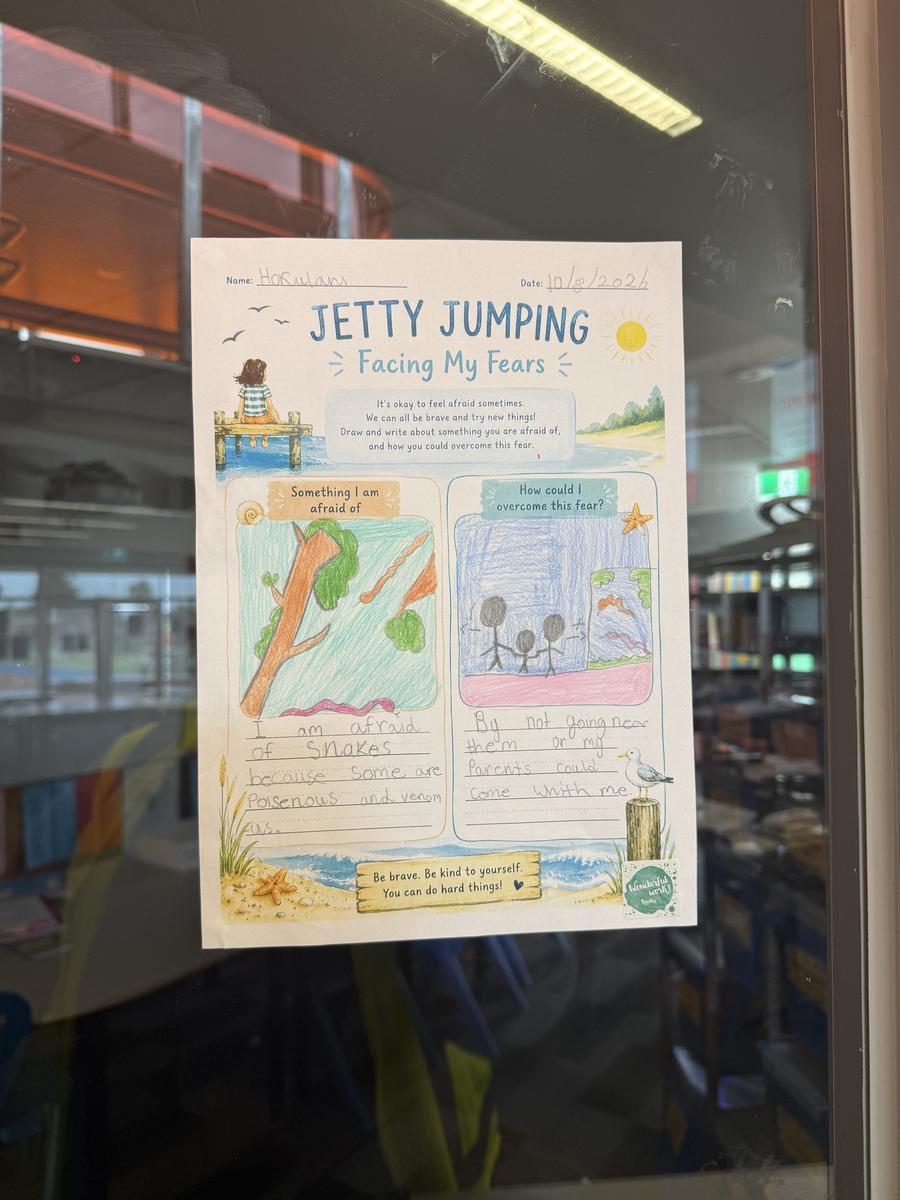 Name: Hokulani
Date: 10/8/2026
JETTY JUMPING
Facing My Fears
It's okay to feel afraid sometimes.
We can all be brave and try new things!
Draw and write about something you are afraid of,
and how you could overcome this fear.
Something I am
afraid of
I am afraid
of Snakes
because some are
Poisenous and venom
us.
How could I
overcome this fear?
By not going near
them or my
Parents could
come whith me.
Be brave. Be kind to yourself.
You can do hard things!
Wonderful
work!